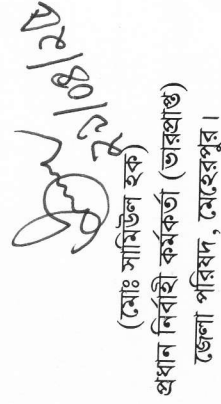 (মোঃ সামিউল হক)
প্রধান নির্বাহী কর্মকর্তা (ভারপ্রাপ্ত)
জেলা পরিষদ, মেহেরপুর।